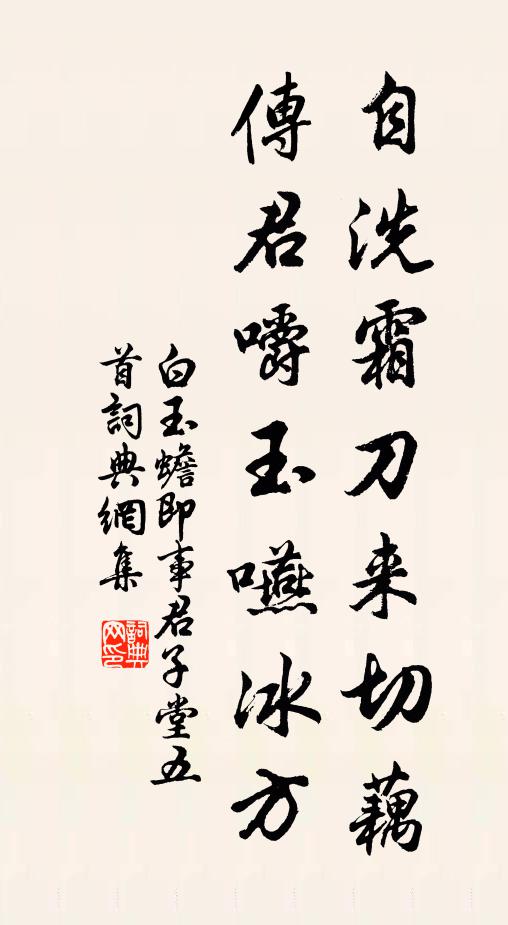 自洗霜刀来切藕
傳君嚼玉嚥冰方
白玉蟾即事君子堂五
首詞典網集
詞典网印